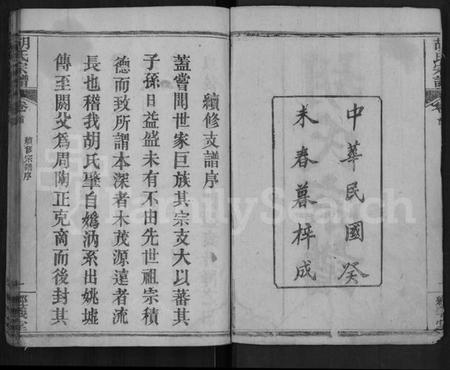 中華民國癸
未春暮梓成
續修支譜序
蓋嘗聞世家巨族其宗支大以蕃其
子孫日益盛未有不由先世祖宗積
德而致所謂本深者木茂源遠者流
長也稽我胡氏肇自媯汭系出姚墟
傳至閼父爲周陶正克商而後封其
胡氏宗譜
卷首
續修宗譜序
一
經義堂
FamilySearch